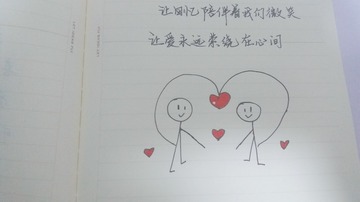 让回忆陪伴着我们微笑
让爱永远萦绕在心间